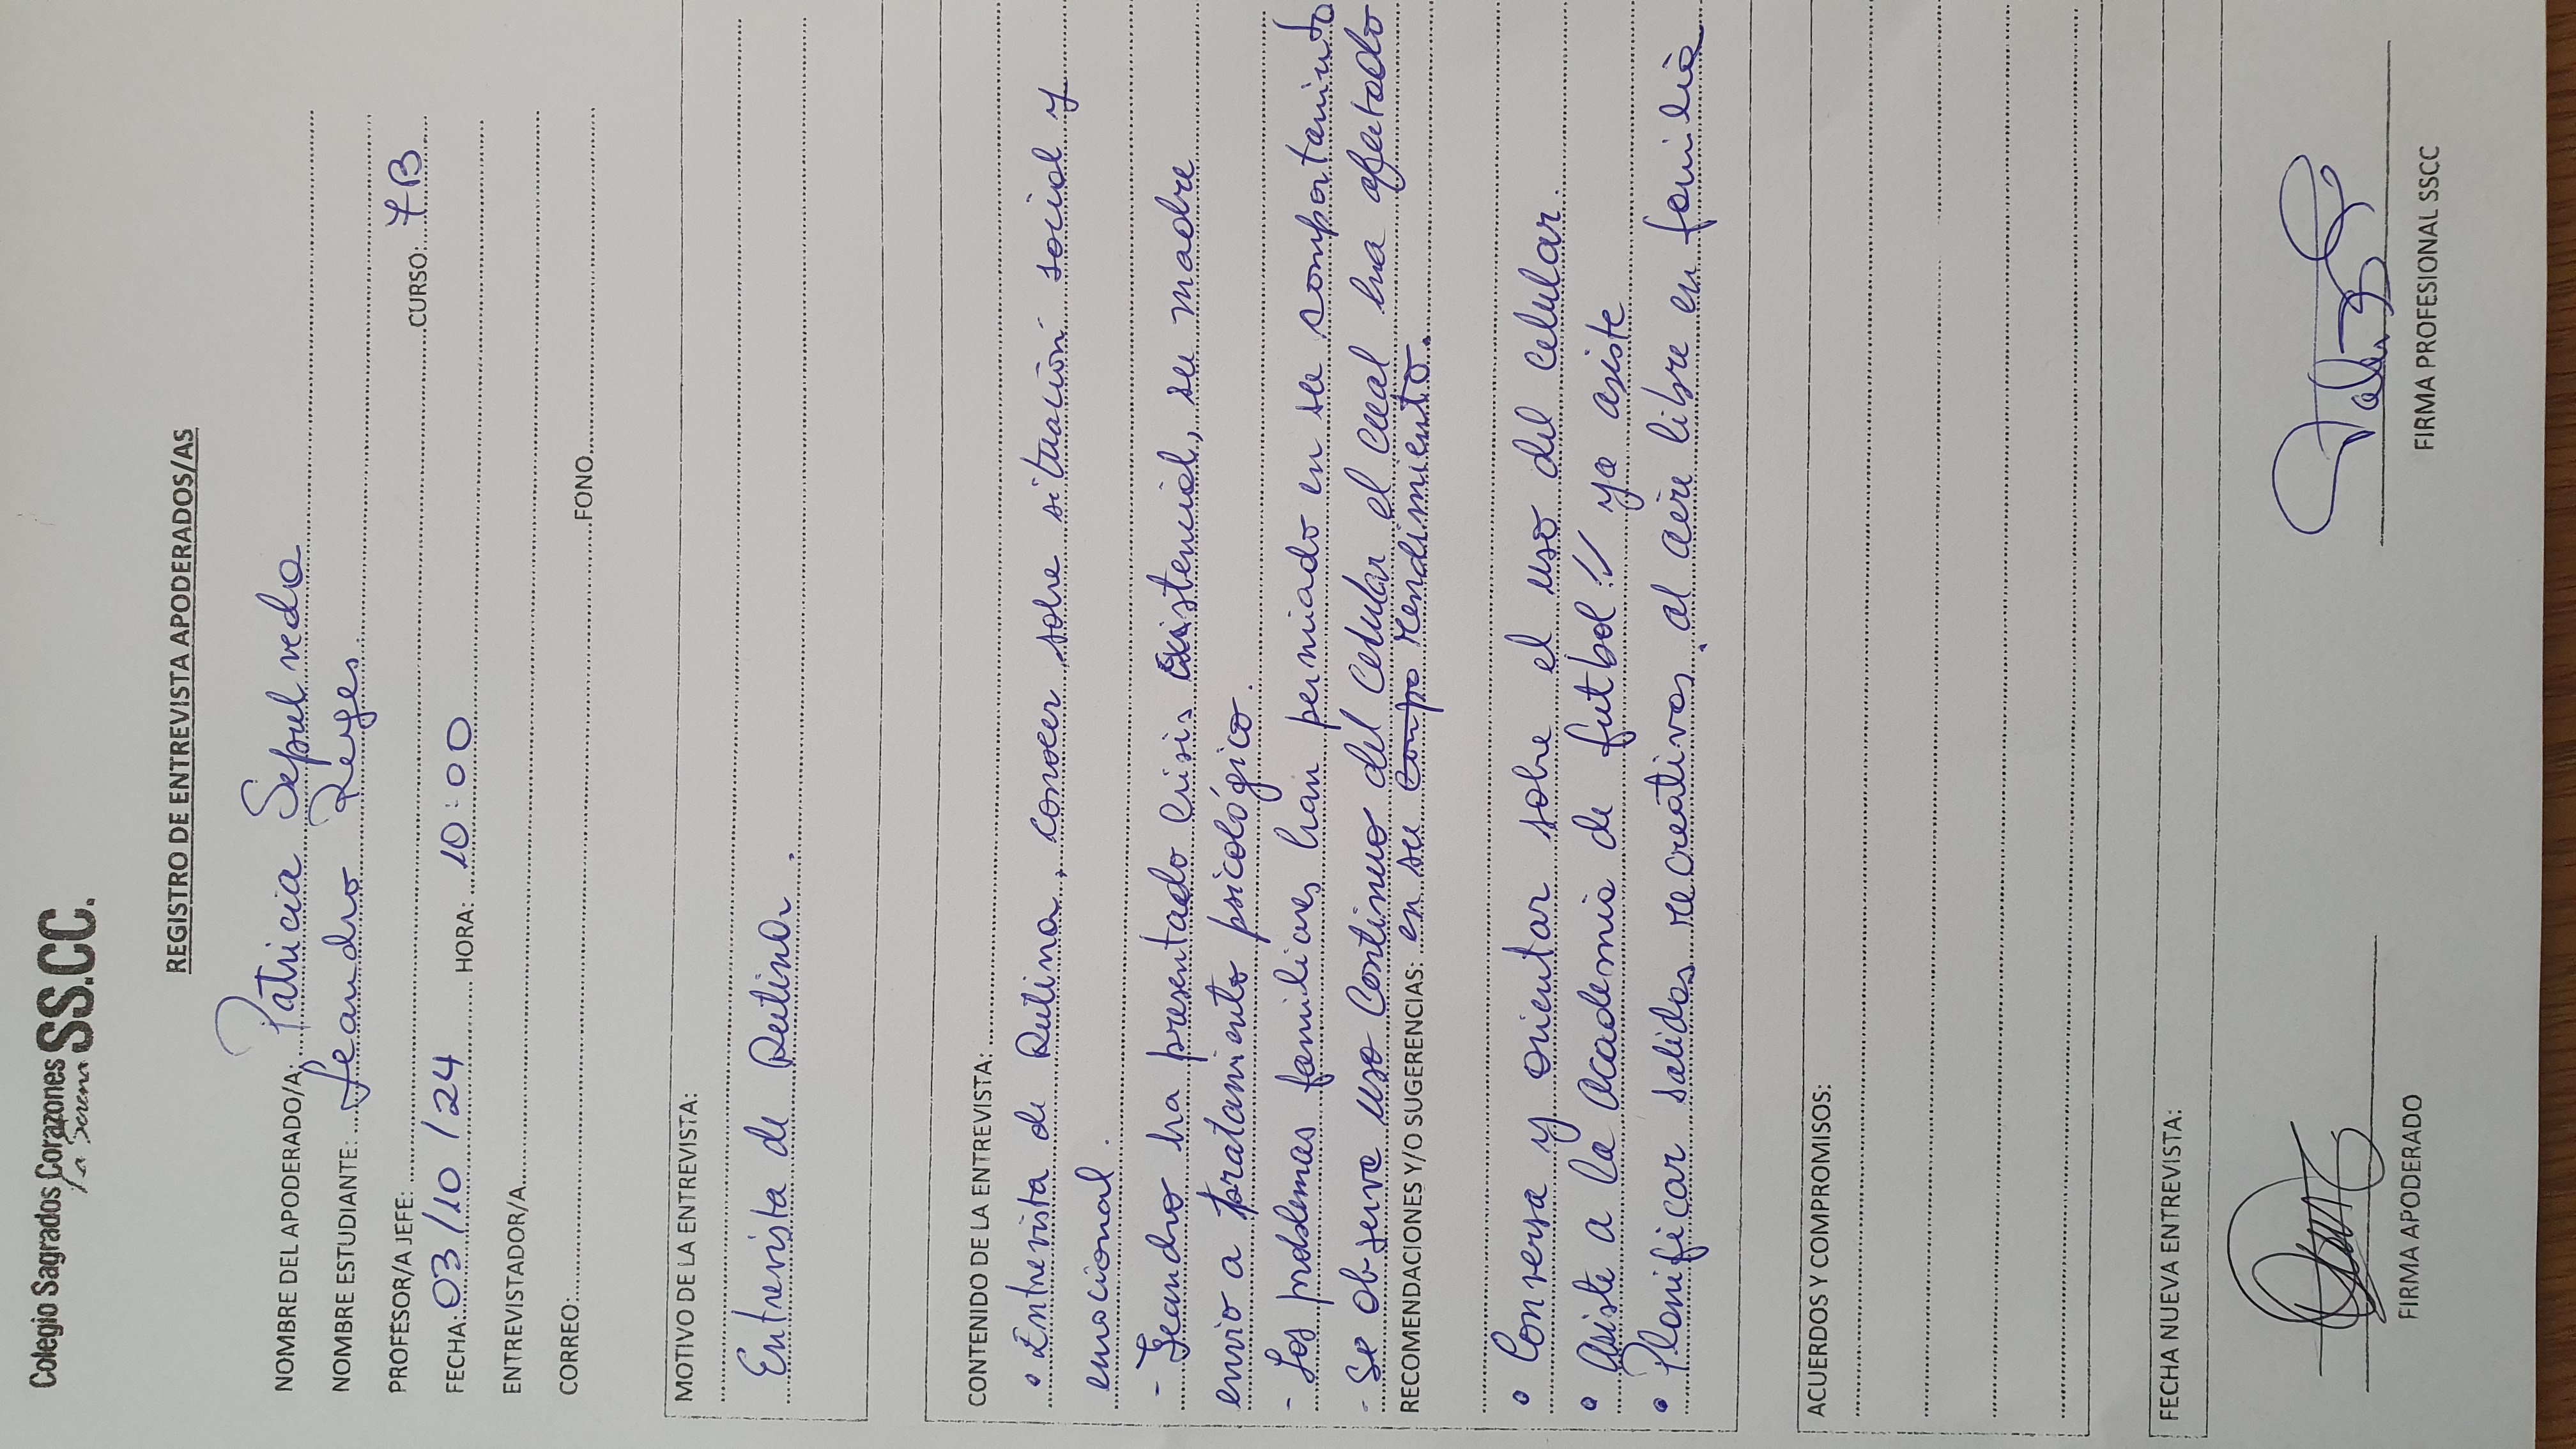 Colegio Sagrados Corazones SS.CC.
La Serena
REGISTRO DE ENTREVISTA APODERADOS/AS
NOMBRE DEL APODERADO/A: Patricia Sepulveda
NOMBRE ESTUDIANTE: Leandro Reyes
PROFESOR/A JEFE: CURSO: 7B
FECHA: 03/10/24 HORA: 10:00
ENTREVISTADOR/A
CORREO: FONO
MOTIVO DE LA ENTREVISTA:
Entrevista de Rutina.
CONTENIDO DE LA ENTREVISTA:
• Entrevista de Rutina, conocer sobre situación social y
emocional.
- Leandro ha presentado crisis existencial, su madre
envio a tratamiento psicológico.
- Los problemas familiares han permiado en su comportamiento
- Se observa uso continuo del celular el cual ha afectado
RECOMENDACIONES Y/O SUGERENCIAS: en su rendimiento.
• Conversa y orientar sobre el uso del celular.
• Asiste a la academia de futbol!! ya asiste
• Planificar salidas recreativas, al aire libre en familia
ACUERDOS Y COMPROMISOS:
FECHA NUEVA ENTREVISTA:
FIRMA APODERADO FIRMA PROFESIONAL SSCC